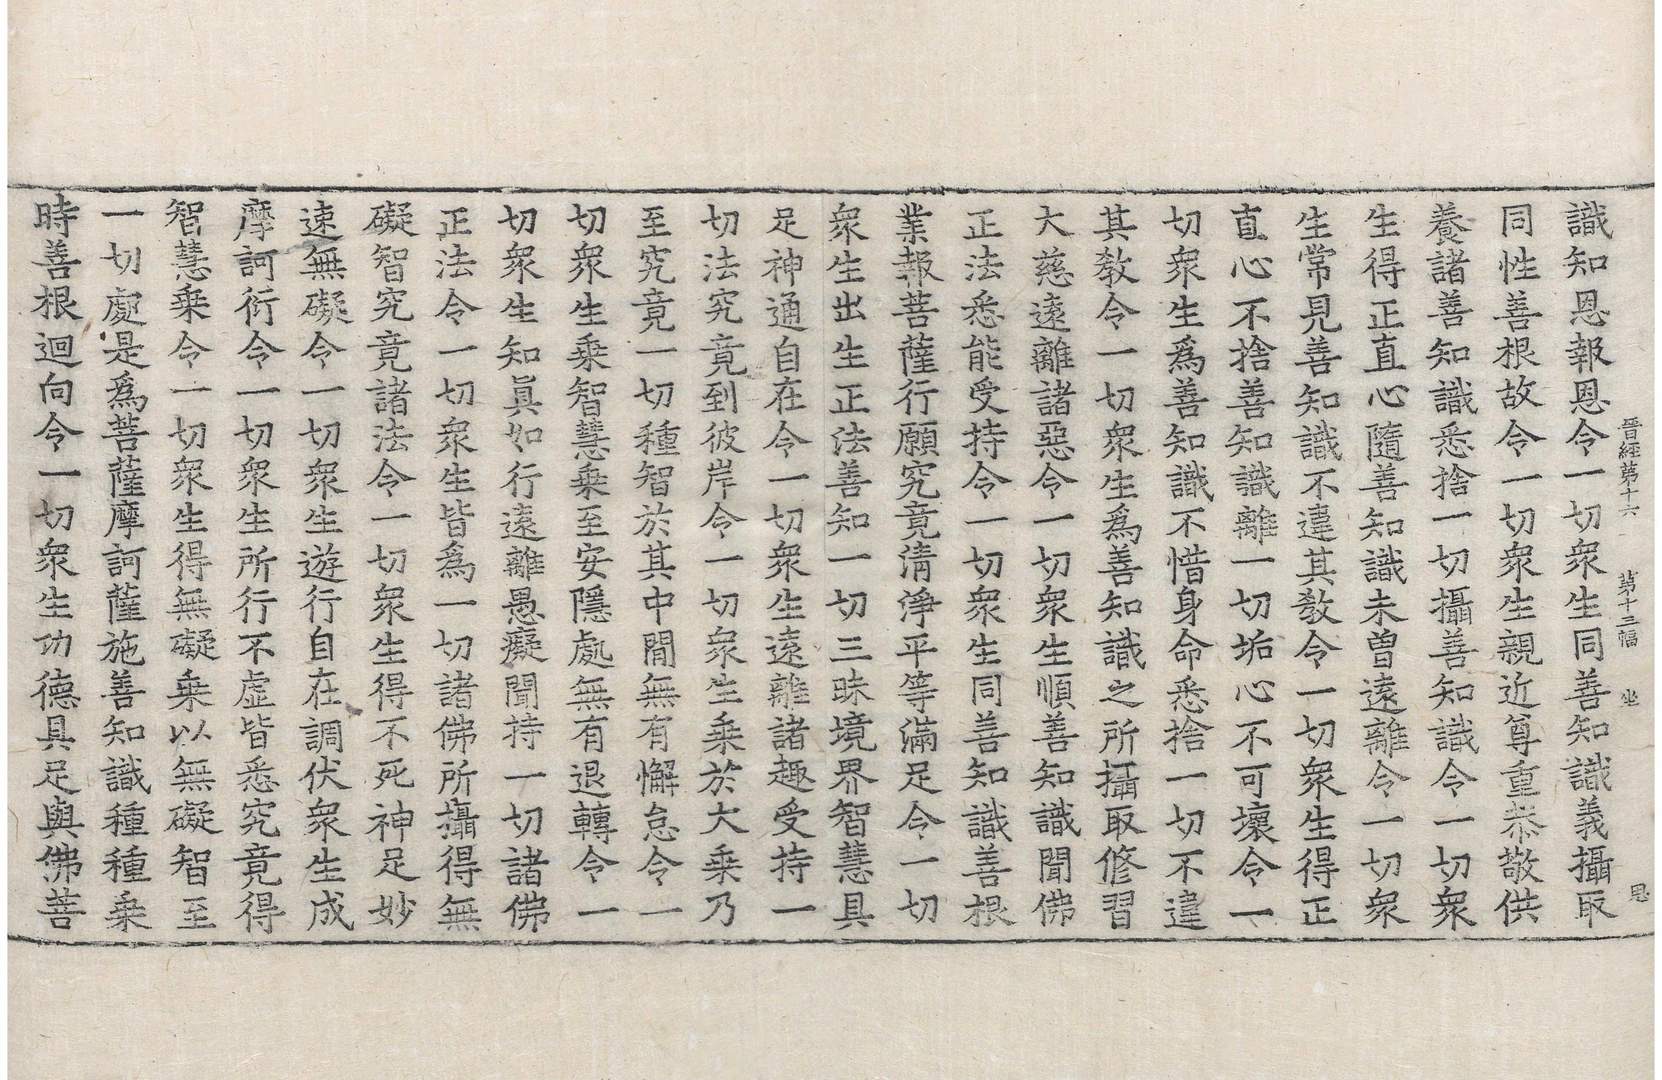 晉經第十六　第十三幅　坐　恩
識知恩報恩令一切衆生同善知識義攝取
同性善根故令一切衆生親近尊重恭敬供
養諸善知識悉捨一切攝善知識令一切衆
生得正直心隨善知識未曽遠離令一切衆
生常見善知識不違其敎令一切衆生得正
直心不捨善知識離一切垢心不可壞令一
切衆生爲善知識不惜身命悉捨一切不違
其敎令一切衆生爲善知識之所攝取修習
大慈遠離諸惡令一切衆生順善知識聞佛
正法悉能受持令一切衆生同善知識善根
業報菩薩行願究竟淸淨平等滿足令一切
衆生出生正法善知一切三昧境界智慧具
足神通自在令一切衆生遠離諸趣受持一
切法究竟到彼岸令一切衆生乗於大乗乃
至究竟一切種智於其中間無有懈怠令一
切衆生乗智慧乗至安隱處無有退轉令一
切衆生知眞如行遠離愚癡聞持一切諸佛
正法令一切衆生皆爲一切諸佛所攝得無
礙智究竟諸法令一切衆生得不死神足妙
速無礙令一切衆生遊行自在調伏衆生成
摩訶衍令一切衆生所行不虛皆悉究竟得
智慧乗令一切衆生得無礙乗以無礙智至
一切處是爲菩薩摩訶薩施善知識種種乗
時善根迴向令一切衆生功德具足與佛菩